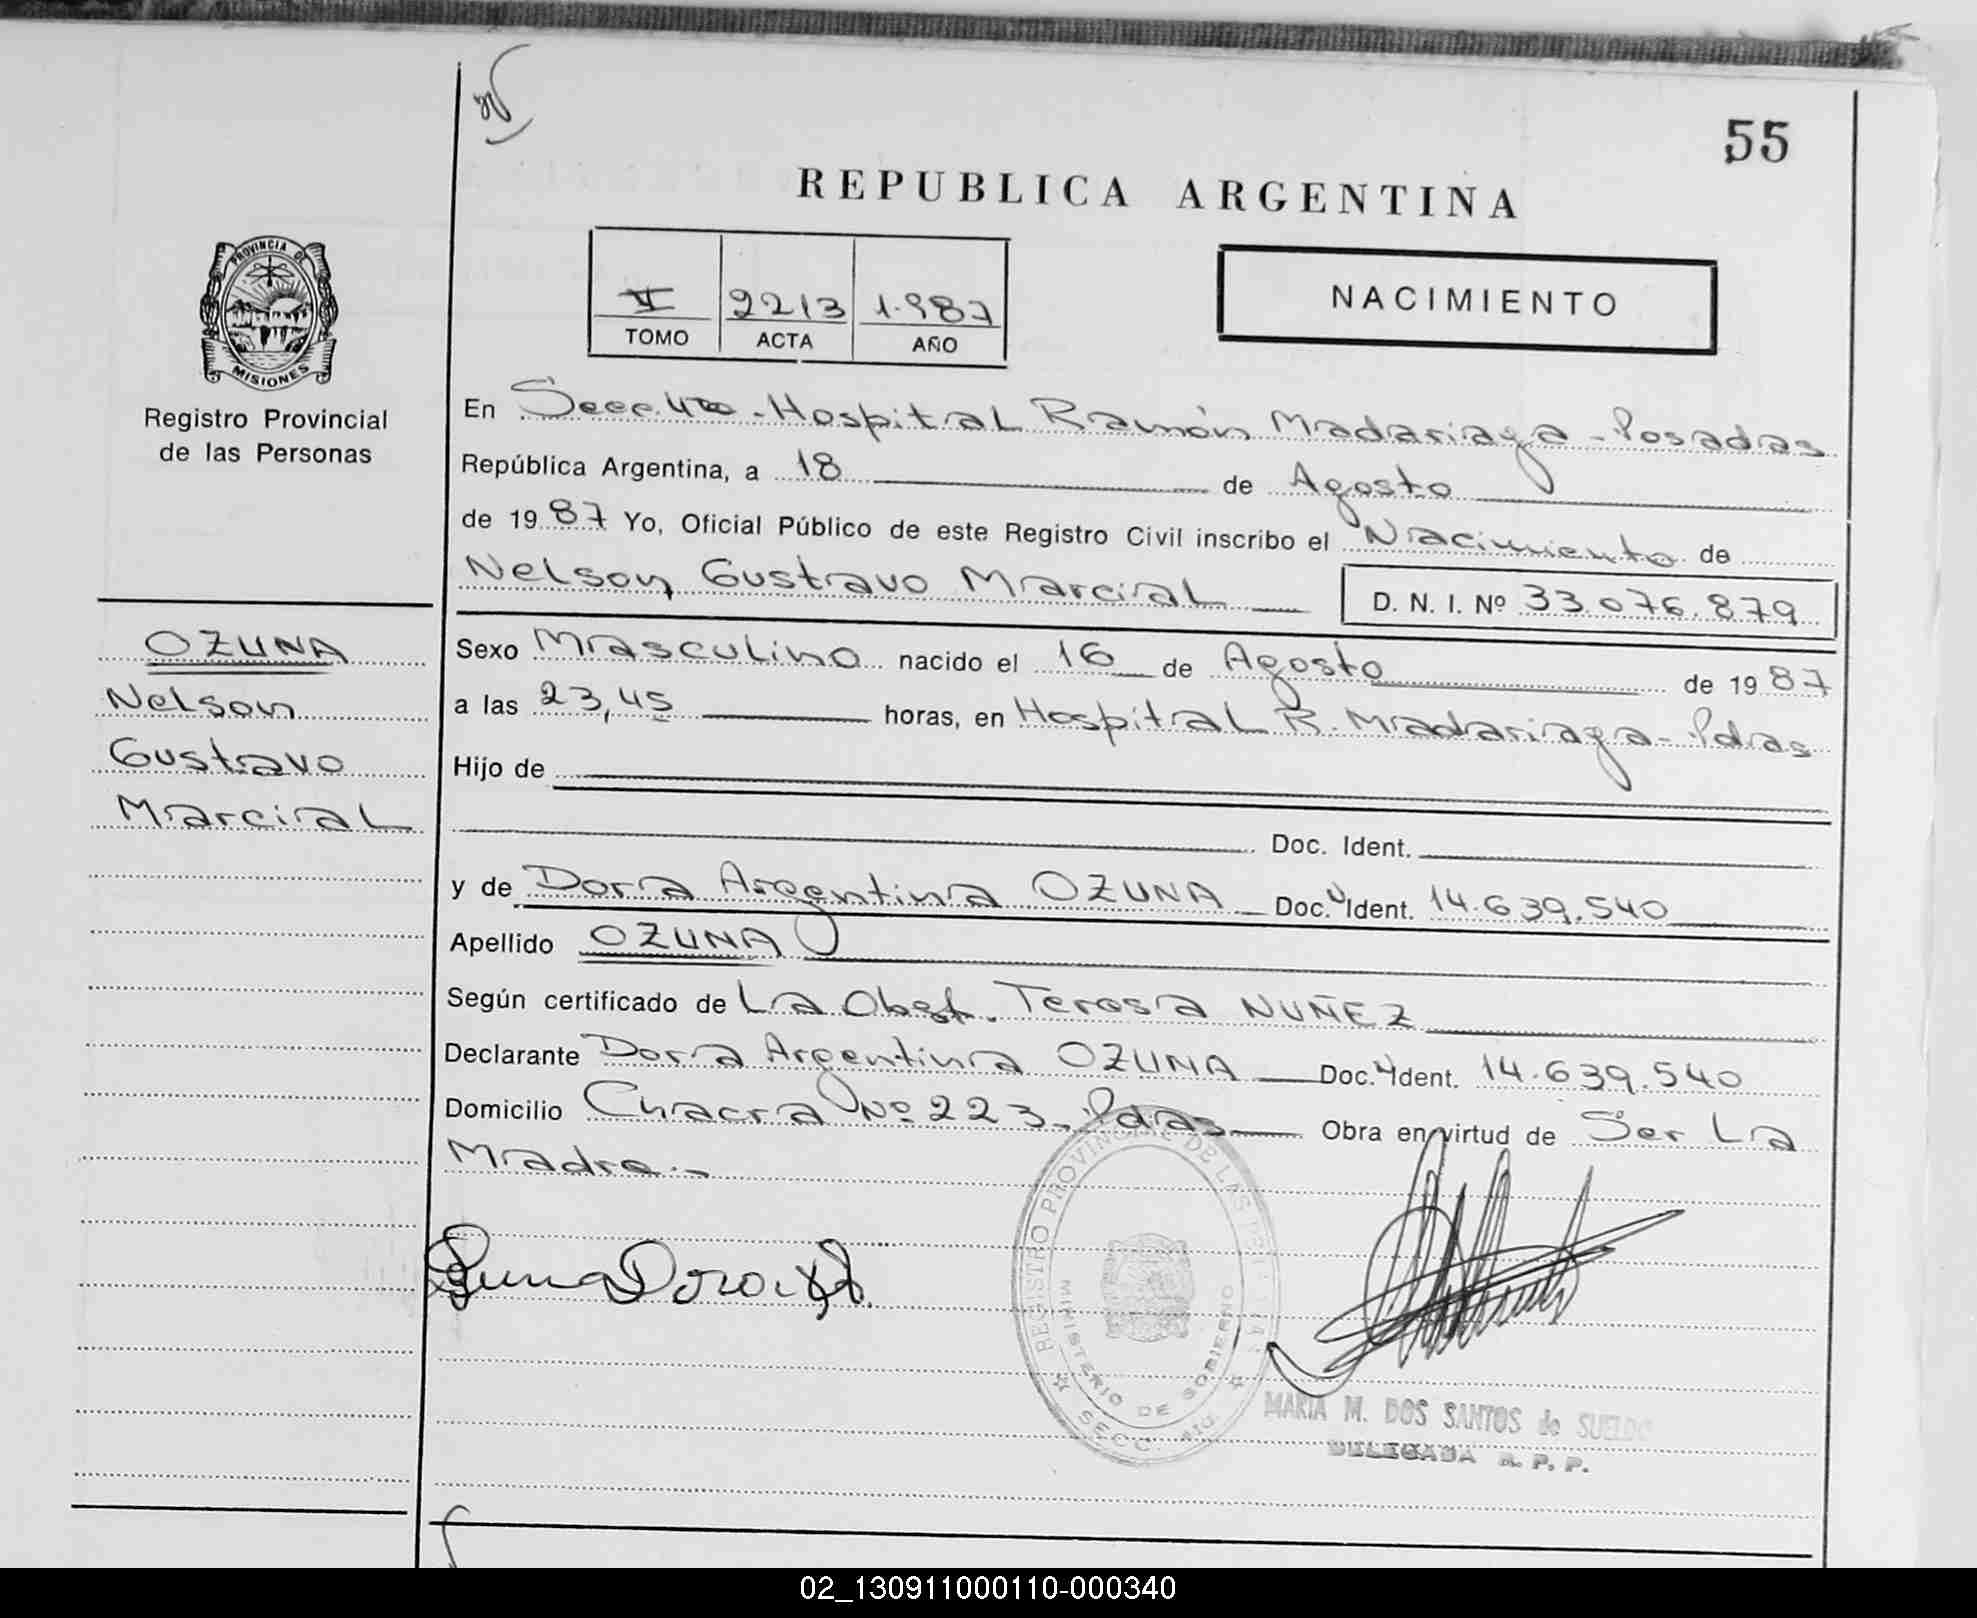 55
REPUBLICA ARGENTINA
PROVINCIA DE
MISIONES
Registro Provincial
de las Personas
VI 2213 1.987
TOMO ACTA AÑO
NACIMIENTO
En Secc. 4ta - Hospital Ramón Madariaga - Posadas
República Argentina, a 18 de Agosto
de 1987 Yo, Oficial Público de este Registro Civil inscribo el Nacimiento de
Nelson Gustavo Marcial D. N. I. Nº 33.076.879
OZUNA
Nelson
Gustavo
Marcial
Sexo Masculino nacido el 16 de Agosto de 1987
a las 23,45 horas, en Hospital R. Madariaga - Pdas
Hijo de
Doc. Ident.
y de Dora Argentina OZUNA Doc. Ident. 14.639.540
Apellido OZUNA
Según certificado de La Obst. Teresa NUÑEZ
Declarante Dora Argentina OZUNA Doc. Ident. 14.639.540
Domicilio Chacra Nº 223, Pdas Obra en virtud de Ser La
Madre.-
REGISTRO PROVINCIAL DE LAS PERSONAS
MINISTERIO DE GOBIERNO
SECC. 4ta
MARIA M. DOS SANTOS de SUELDO
DELEGADA R. P. P.
02_130911000110-000340